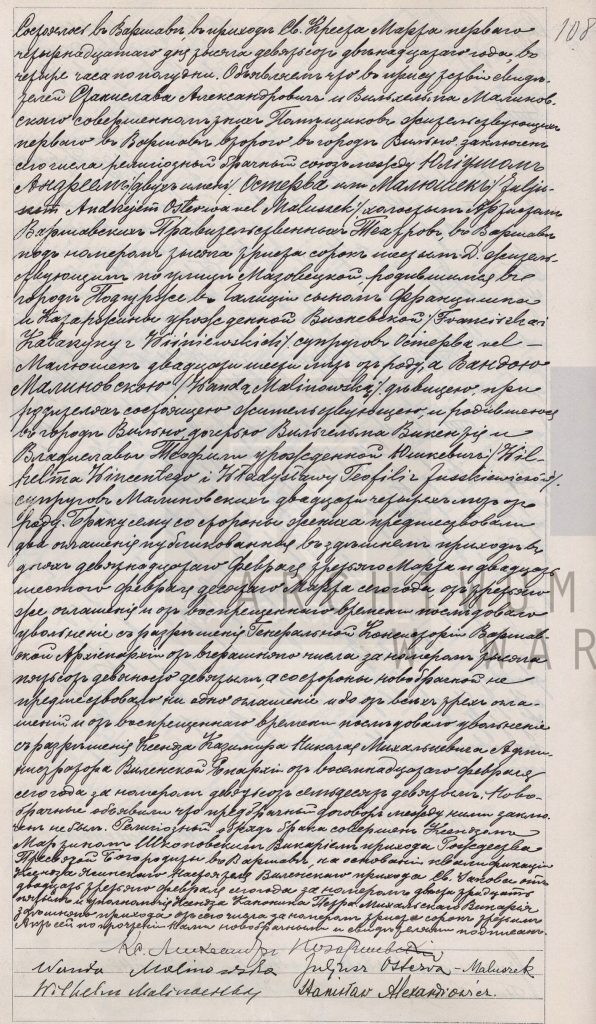 108
Состоялось въ Варшавѣ въ приходѣ Св. Креста Марта перваго
четырнадцатаго дня тысяча девятьсотъ двѣнадцатаго года, въ
четыре часа пополудни. Объявляемъ что въ присутствіи свидѣ-
телей Станислава Александровичъ и Вильгельма Малинов-
скаго совершеннолѣтнихъ Помѣщиковъ жительствующихъ
перваго въ Варшавѣ втораго въ городѣ Вильно заключенъ
сего числа религіозный брачный союзъ между Юліушомъ
Андреемъ /двухъ именъ/ Остерва или Малюшекъ /Juljus-
zem Andrzejem Osterwa vel Maluszek/ холостымъ Артистомъ
Варшавскихъ Правительственныхъ Театровъ, въ Варшавѣ
подъ номеромъ тысяча триста сорокъ шестымъ Д. житель-
ствующимъ по улицѣ Мазовецкой, родившимся въ
городѣ Подгурже въ Галиціи сыномъ Францишка
и Катаржины урожденной Висневской /Franciszka i
Katarzyny z Wiśniewskich/ супруговъ Остерва vel –
Малюшекъ двадцати шести лѣтъ отъ роду, а Вандою
Малиновскою /Wandą Malinowską/ дѣвицею, при
родителяхъ состоящею жительствующею, и родившеюся
въ городѣ Вильно, дочерью Вильгельма Викентія и
Владиславы Теофили урожденной Юшкевичъ /Wil-
helma Wincentego i Władysławy Teofili z Juszkiewiczów/.
супруговъ Малиновскихъ двадцати четырехъ лѣтъ отъ
роду. Браку сему со стороны жениха предшествовали
два оглашенія публикованныя въ здѣшнемъ приходѣ въ
дняхъ девятнадцатаго Февраля третьяго Марта и двадцать
шестого февраля десятаго Марта сего года отъ третьяго
же оглашенія и отъ воспрещеннаго времени послѣдовало
увольненіе съ разрѣшенія Генеральной Консисторіи Варшав-
ской Архіепархіи отъ вчерашняго числа за номеромъ тысяча
пятьсотъ девяносто девятымъ, а со стороны новобрачной не
предшествовало ни одно оглашеніе ибо отъ всѣхъ трехъ огла-
шеній и отъ воспрещеннаго времени послѣдовало увольненіе
съ разрѣшенія Ксендза Казимира Николая Михалькевича Адми-
нистратора Виленской Епархіи отъ восемнадцатаго февраля
сего года за номеромъ девятьсотъ семьдесятъ девятымъ. Ново-
брачные объявили что предбрачный договоръ между ними заклю-
ченъ не былъ. Религіозный обрядъ брака совершенъ Ксендзомъ
Мартиномъ Шкоповскимъ Викаріемъ прихода Рождества
Пресвятой Богородицы въ Варшавѣ, на основаніи квалификаціи
Ксендза Ясинскаго Настоятеля Виленскаго прихода Св. Іакова отъ
двадцать третьяго февраля сего года за номеромъ двѣсти тридцать
пятымъ и уполномочія Ксендза Каноника Петра Михальскаго Викарія
здѣшняго прихода отъ сего числа за номеромъ триста сорокъ третьимъ.
Актъ сей по прочтеніи нами новобрачными и свидѣтелями подписанъ.
Кс. Александръ
Wanda Malinowska Juljusz Osterwa – Maluszek
Wilhelm Malinowski Stanisław Alexandrowicz.
ARCHIWUM
W WAR